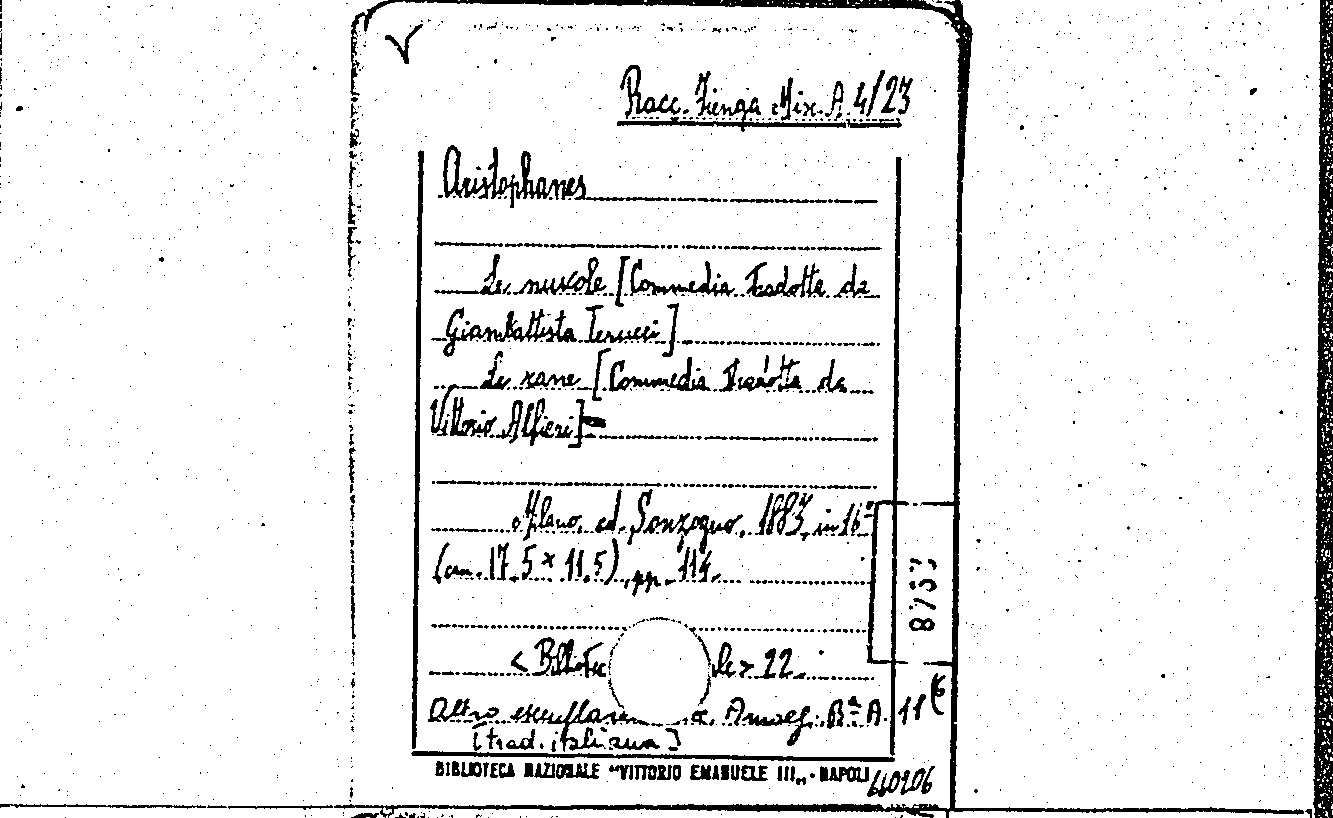 Racc. Fienga Mix. A 4/23
Aristophanes
Le nuvole [Commedia tradotta da
Giambattista Terucci]
Le rane [Commedia tradotta da
Vittorio Alfieri]
Milano, ed. Sonzogno, 1883, in 16º
(cm. 17.5 × 11.5), pp. 114.
8757
< Bibliotec le > 22.
Altro esemplare B.ª A 11 (6
[trad. italiana]
BIBLIOTECA NAZIONALE "VITTORIO EMANUELE III„ - NAPOLI